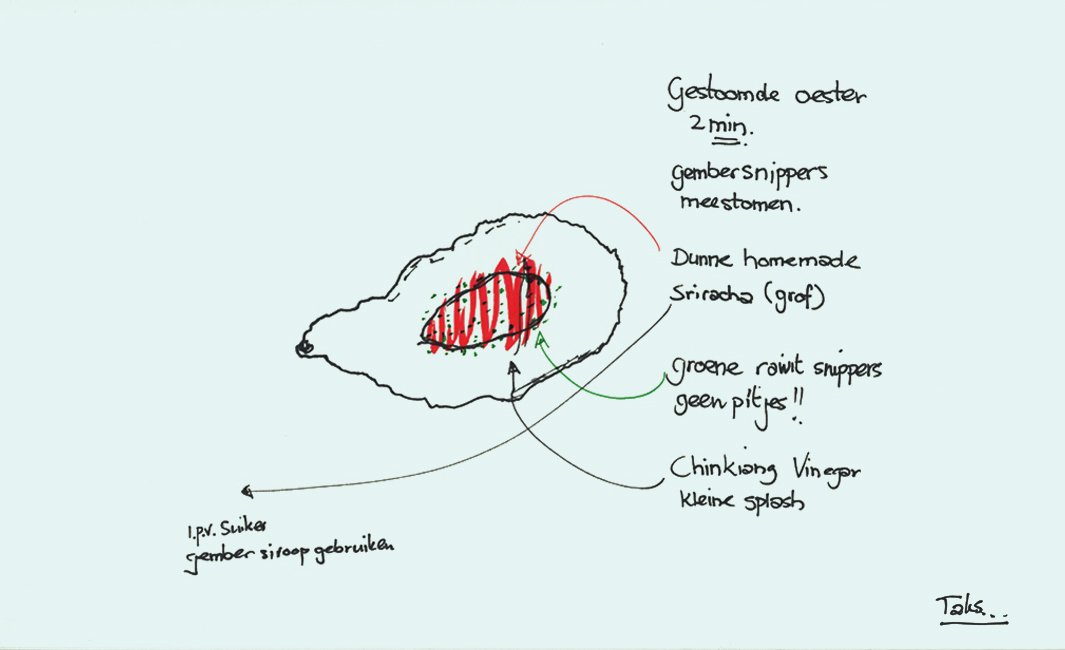 Gestoomde oester
2 min.
gembersnippers
meestomen.
Dunne homemade
Sriracha (grof)
groene rawit snippers
geen pitjes!!
Chinkiang Vinegar
kleine splash
I.p.v. Suiker
gember siroop gebruiken
Taks...